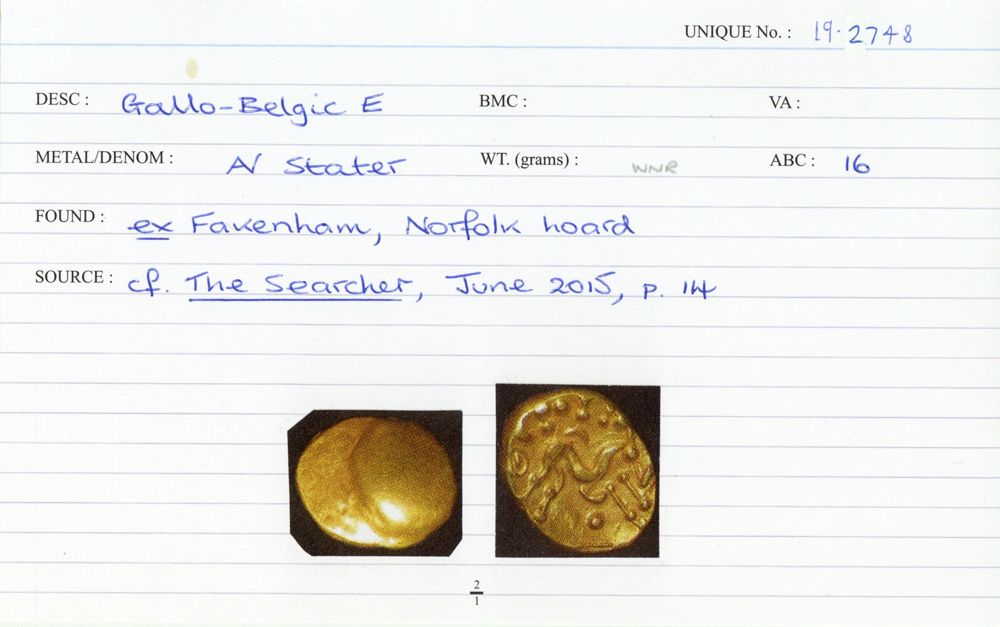 UNIQUE No. : 19.2748
DESC : Gallo-Belgic E BMC : VA :
METAL/DENOM : AV Stater WT. (grams) : WNR ABC : 16
FOUND : ex Fakenham, Norfolk hoard
SOURCE : cf. The Searcher, June 2015, p. 14
2
1